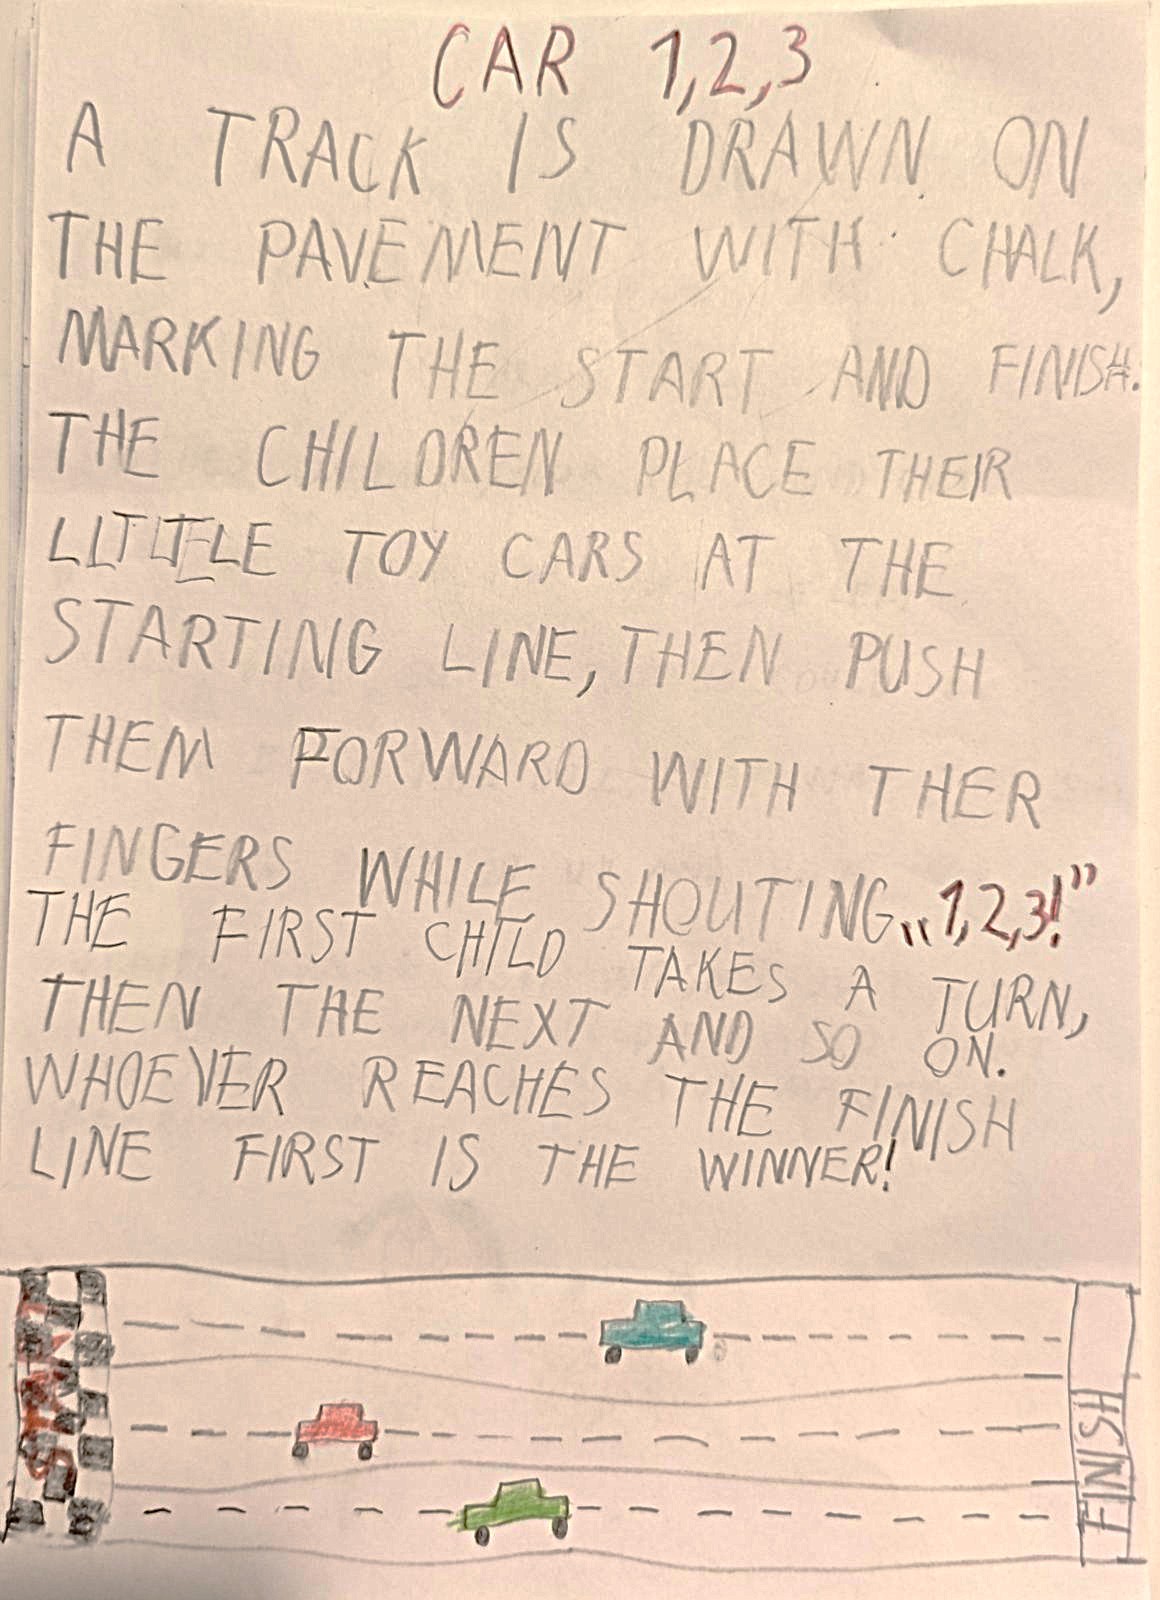 CAR 1,2,3
A TRACK IS DRAWN ON
THE PAVEMENT WITH CHALK,
MARKING THE START AND FINISH.
THE CHILDREN PLACE THEIR
LITTLE TOY CARS AT THE
STARTING LINE, THEN PUSH
THEM FORWARD WITH THER
FINGERS WHILE SHOUTING „1,2,3!”
THE FIRST CHILD TAKES A TURN,
THEN THE NEXT AND SO ON.
WHOEVER REACHES THE FINISH
LINE FIRST IS THE WINNER!
FINISH